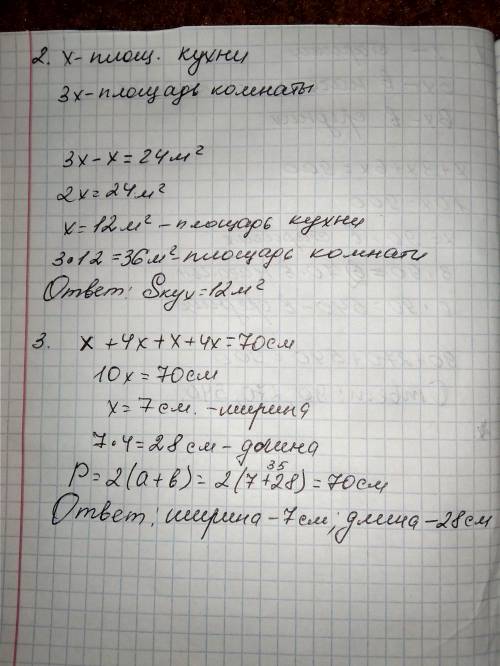 2. x - площ. кухни
3x - площадь комнаты
3x - x = 24 м²
2x = 24 м²
x = 12 м² - площадь кухни
3•12 = 36 м² - площадь комнати
Ответ: Sкух = 12 м²
3. x + 4x + x + 4x = 70 см
10x = 70 см
x = 7 см. - ширина
7•4 = 28 см - длина
35
P = 2(a + b) = 2(7 + 28) = 70 см
Ответ: ширина - 7 см; длина - 28 см